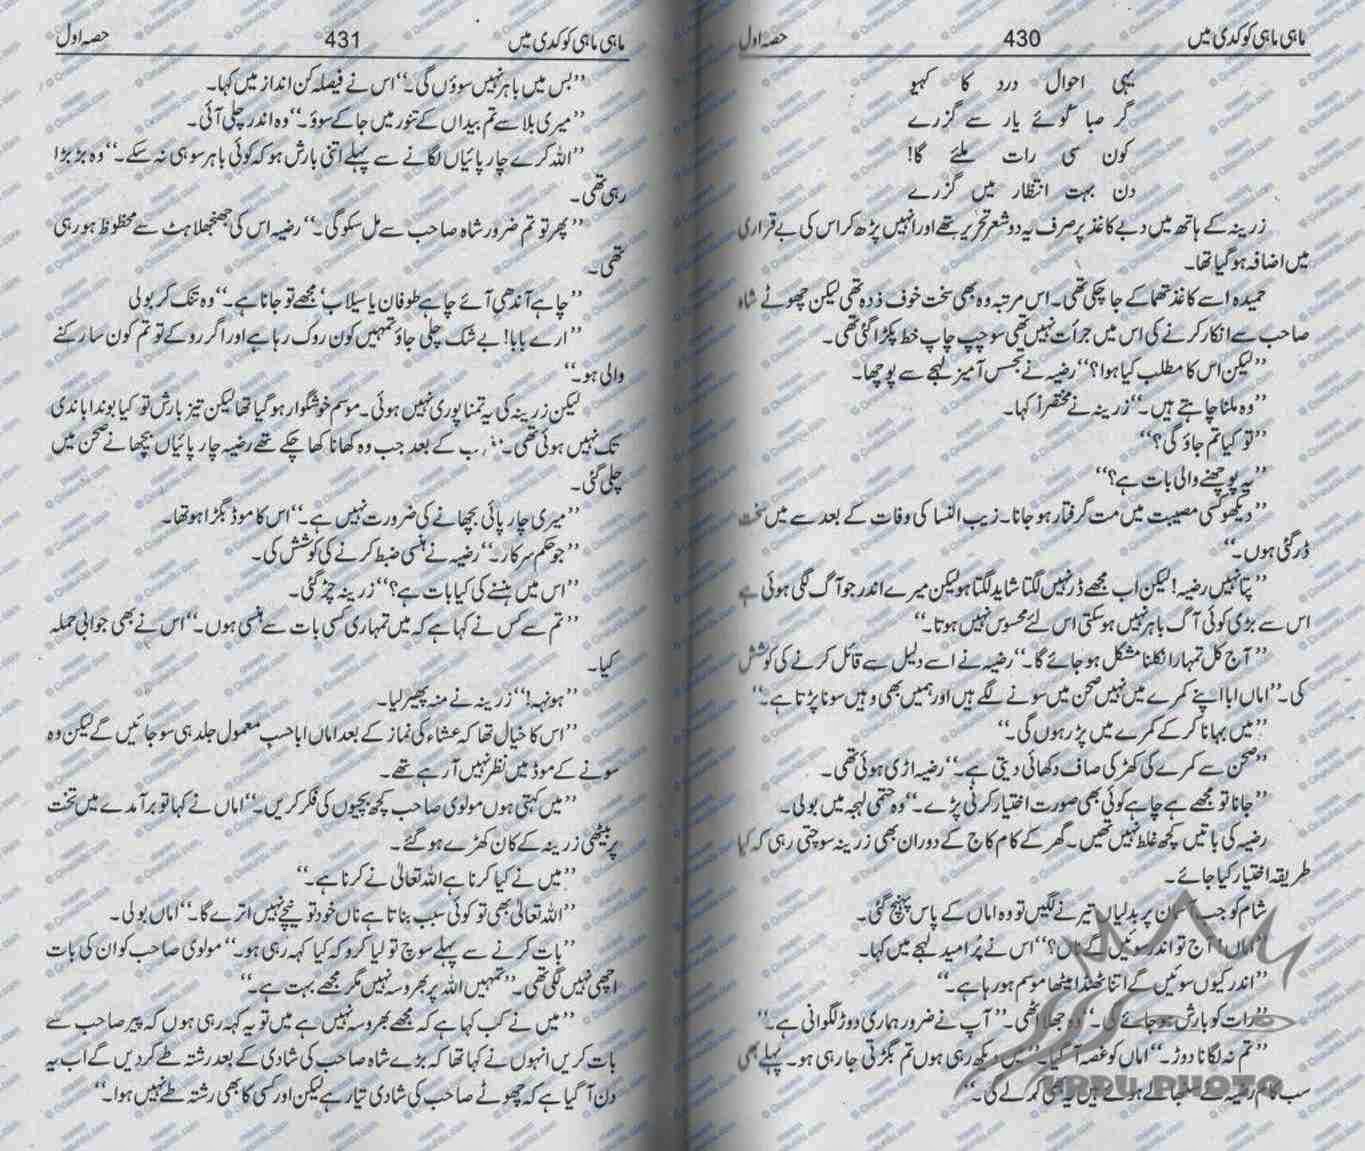 ماہی ماہی کوکدی میں 430 حصہ اول
یہی احوال درد کا کہیو
گر صبا کوئے یار سے گزرے
کون سی رات ملئے گا!
دن بہت انتظار میں گزرے
زرینہ کے ہاتھ میں دبے کاغذ پر صرف یہ دو شعر تحریر تھے اور انہیں پڑھ کر اس کی بے قراری
میں اضافہ ہو گیا تھا۔
حمیدہ اسے کاغذ تھما کے جا چکی تھی۔ اس مرتبہ وہ بھی سخت خوف زدہ تھی لیکن چھوٹے شاہ
صاحب سے انکار کرنے کی اس میں جرأت نہیں تھی سو چپ چاپ خط پکڑا گئی تھی۔
’’لیکن اس کا مطلب کیا ہوا؟‘‘ رضیہ نے تجسس آمیز لہجے سے پوچھا۔
’’وہ ملنا چاہتے ہیں۔‘‘ زرینہ نے مختصراً کہا۔
’’تو کیا تم جاؤ گی؟‘‘
’’یہ پوچھنے والی بات ہے؟‘‘
’’دیکھو کسی مصیبت میں مت گرفتار ہو جانا۔ زیب النسا کی وفات کے بعد سے میں سخت
ڈر گئی ہوں۔‘‘
’’پتا نہیں رضیہ! لیکن اب مجھے ڈر نہیں لگتا شاید لگتا ہو لیکن میرے اندر جو آگ لگی ہوئی ہے
اس سے بڑی کوئی آگ باہر نہیں ہو سکتی اس لئے محسوس نہیں ہوتا۔‘‘
’’آج کل تمہارا نکلنا مشکل ہو جائے گا۔‘‘ رضیہ نے اسے دلیل سے قائل کرنے کی کوشش
کی۔ ’’اماں ابا اپنے کمرے میں نہیں صحن میں سونے لگے ہیں اور ہمیں بھی وہیں سونا پڑتا ہے۔‘‘
’’میں بہانا کر کے کمرے میں پڑ رہوں گی۔‘‘
’’صحن سے کمرے کی کھڑکی صاف دکھائی دیتی ہے۔‘‘ رضیہ اڑی ہوئی تھی۔
’’جانا تو مجھے ہے چاہے کوئی بھی صورت اختیار کرنی پڑے۔‘‘ وہ حتمی لہجہ میں بولی۔
رضیہ کی باتیں کچھ غلط نہیں تھیں۔ گھر کے کام کاج کے دوران بھی زرینہ سوچتی رہی کہ کیا
طریقہ اختیار کیا جائے۔
شام کو جب آسمان پر بدلیاں تیرنے لگیں تو وہ اماں کے پاس پہنچ گئی۔
’’اماں! آج تو اندر سوئیں گے ناں؟‘‘ اس نے پُر امید لہجے میں کہا۔
’’اندر کیوں سوئیں گے اتنا ٹھنڈا میٹھا موسم ہو رہا ہے۔‘‘
’’رات کو بارش ہو جائے گی۔‘‘ وہ جھلا اٹھی۔ ’’آپ نے ضرور ہماری دوڑ لگوانی ہے۔‘‘
’’تم نہ لگانا دوڑ۔‘‘ اماں کو غصہ آ گیا۔ ’’میں دیکھ رہی ہوں تم بگڑتی جا رہی ہو۔ پہلے بھی
سب کام رضیہ نے سنبھالے ہوئے ہیں یہ بھی کر لے گی۔‘‘
URDU PHOTO
ماہی ماہی کوکدی میں 431 حصہ اول
’’بس میں باہر نہیں سوؤں گی۔‘‘ اس نے فیصلہ کن انداز میں کہا۔
’’میری بلا سے تم بیداں کے تنور میں جا کے سوؤ۔‘‘ وہ اندر چلی آئی۔
’’اللہ کرے چارپائیاں لگانے سے پہلے اتنی بارش ہو کہ کوئی باہر سو ہی نہ سکے۔‘‘ وہ بڑبڑا
رہی تھی۔
’’پھر تو تم ضرور شاہ صاحب سے مل سکو گی۔‘‘ رضیہ اس کی جھنجھلاہٹ سے محظوظ ہو رہی
تھی۔
’’چاہے آندھی آئے چاہے طوفان یا سیلاب‘ مجھے تو جانا ہے۔‘‘ وہ تنک کر بولی
’’ارے بابا! بے شک چلی جاؤ تمہیں کون روک رہا ہے اور اگر روکے تو تم کون سا رکنے
والی ہو۔‘‘
لیکن زرینہ کی یہ تمنا پوری نہیں ہوئی۔ موسم خوشگوار ہو گیا تھا لیکن تیز بارش تو کیا بوندا باندی
تک نہیں ہوئی تھی۔ کے بعد جب وہ کھانا کھا چکے تھے رضیہ چارپائیاں بچھانے صحن میں
چلی گئی۔
’’میری چارپائی بچھانے کی ضرورت نہیں ہے۔‘‘ اس کا موڈ بگڑا ہوا تھا۔
’’جو حکم سرکار۔‘‘ رضیہ نے ہنسی ضبط کرنے کی کوشش کی۔
’’اس میں ہنسنے کی کیا بات ہے؟‘‘ زرینہ چڑ گئی۔
’’تم سے کس نے کہا ہے کہ میں تمہاری کسی بات سے ہنسی ہوں۔‘‘ اس نے بھی جوابی حملہ
کیا۔
’’ہونہہ!‘‘ زرینہ نے منہ پھیر لیا۔
’’اس کا خیال تھا کہ عشاء کی نماز کے بعد اماں ابا حسب معمول جلد ہی سو جائیں گے لیکن وہ
سونے کے موڈ میں نظر نہیں آ رہے تھے۔
’’میں کہتی ہوں مولوی صاحب کچھ بچیوں کی فکر کریں۔‘‘ اماں نے کہا تو برآمدے میں تخت
پر بیٹھی زرینہ کے کان کھڑے ہو گئے۔
’’میں نے کیا کرنا ہے اللہ تعالیٰ نے کرنا ہے۔‘‘
’’اللہ تعالیٰ بھی تو کوئی سبب بناتا ہے ناں خود تو نیچے نہیں اترے گا۔‘‘ اماں بولی۔
’’بات کرنے سے پہلے سوچ تو لیا کرو کہ کیا کہہ رہی ہو۔‘‘ مولوی صاحب کو ان کی بات
اچھی نہیں لگی تھی۔ ’’تمہیں اللہ پر بھروسہ نہیں مگر مجھے بہت ہے۔‘‘
’’میں نے کب کہا ہے کہ مجھے بھروسہ نہیں ہے میں تو یہ کہہ رہی ہوں کہ پیر صاحب سے
بات کریں انہوں نے کہا تھا کہ بڑے شاہ صاحب کی شادی کے بعد رشتہ طے کر دیں گے اب یہ
دن آ گیا ہے کہ چھوٹے صاحب کی شادی تیار ہے لیکن اور کسی کا بھی رشتہ طے نہیں ہوا۔‘‘